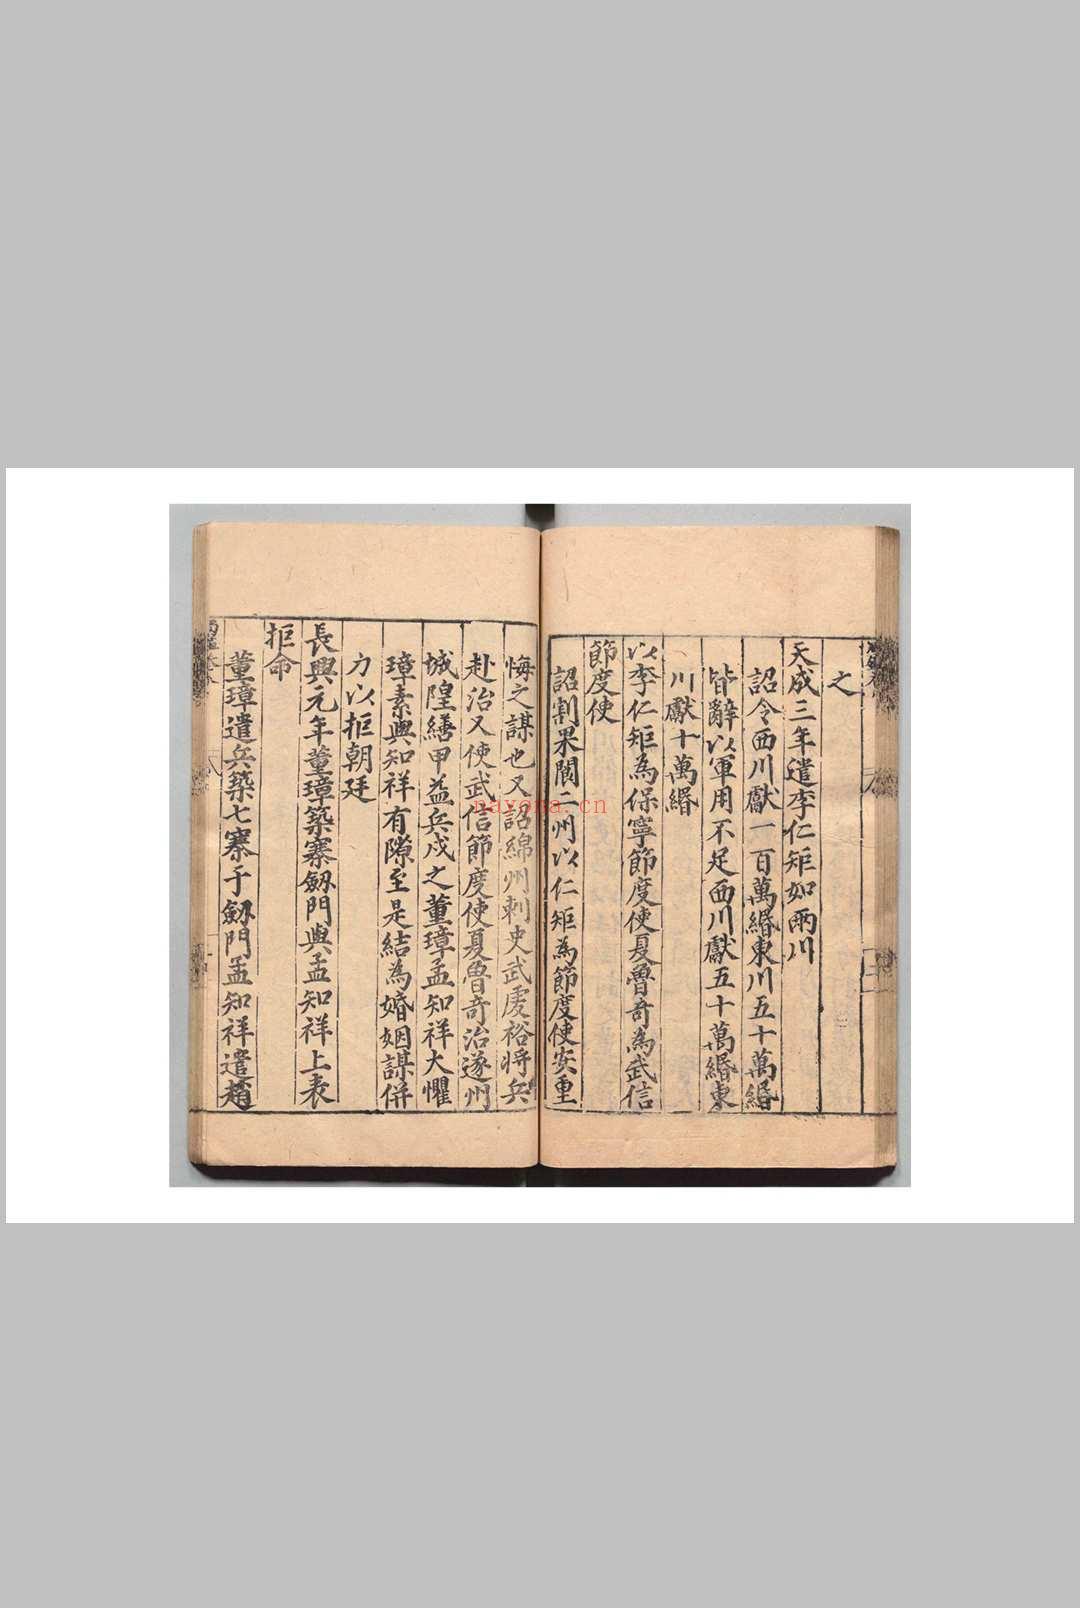 之
天成三年遣李仁矩如兩川
詔令西川獻一百萬緡東川五十萬緡
皆辭以軍用不足西川獻五十萬緡東
川獻十萬緡
以李仁矩為保寧節度使夏魯奇為武信
節度使
詔割果閬二州以仁矩為節度使安重
悔之謀也又詔綿州刺史武虔裕將兵
赴治又使武信節度使夏魯奇治遂州
城隍繕甲益兵戍之董璋孟知祥大懼
璋素與知祥有隙至是結為婚姻謀併
力以拒朝廷
長興元年董璋築寨劔門與孟知祥上表
拒命
董璋遣兵築七寨于劔門孟知祥遣趙
nayona.cn